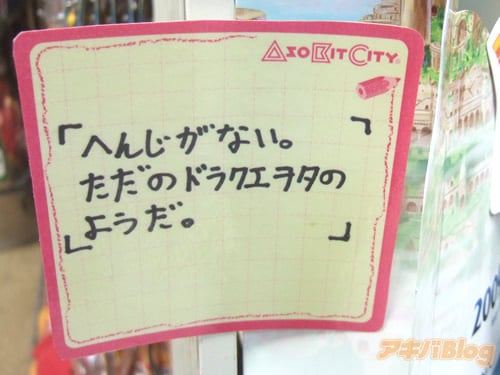 AsoBitCity
「へんじがない。
ただのドラクエヲタの
ようだ。」
200
アキバBlog